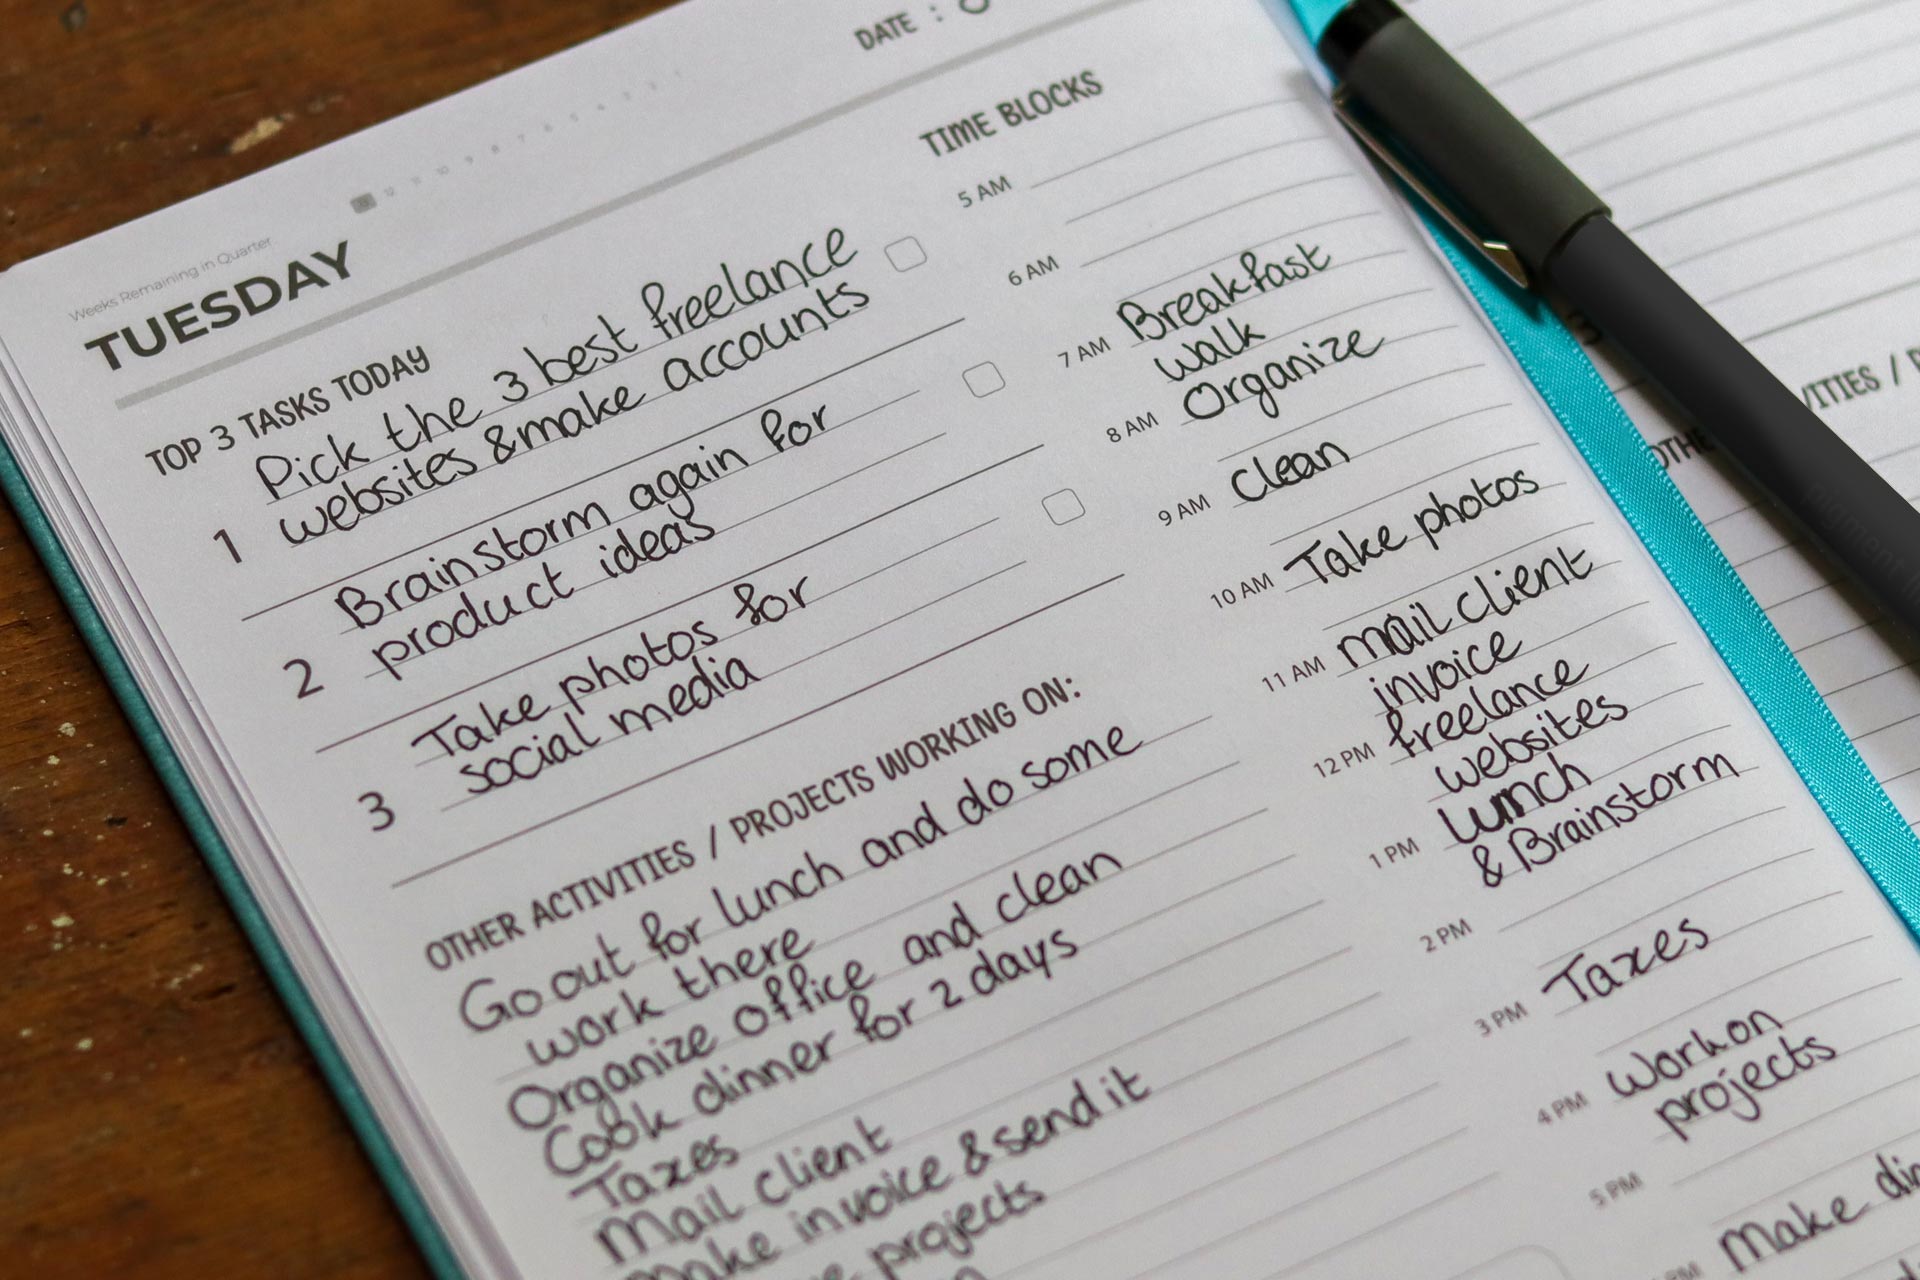 DATE :
Weeks Remaining in Quarter
TUESDAY
TOP 3 TASKS TODAY
Pick the 3 best freelance
1 websites & make accounts
Brainstorm again for
2 product ideas
Take photos for
3 social media
OTHER ACTIVITIES / PROJECTS WORKING ON:
Go out for lunch and do some
work there
Organize office and clean
Cook dinner for 2 days
Taxes
Mail client
Make invoice & send it
projects
TIME BLOCKS
5 AM
6 AM
7 AM Breakfast
walk
8 AM Organize
9 AM Clean
10 AM Take photos
11 AM mail client
invoice
12 PM freelance
websites
1 PM Lunch
& Brainstorm
2 PM
3 PM Taxes
4 PM Work on
projects
5 PM
PM Make
3
VITIES /
OTHE